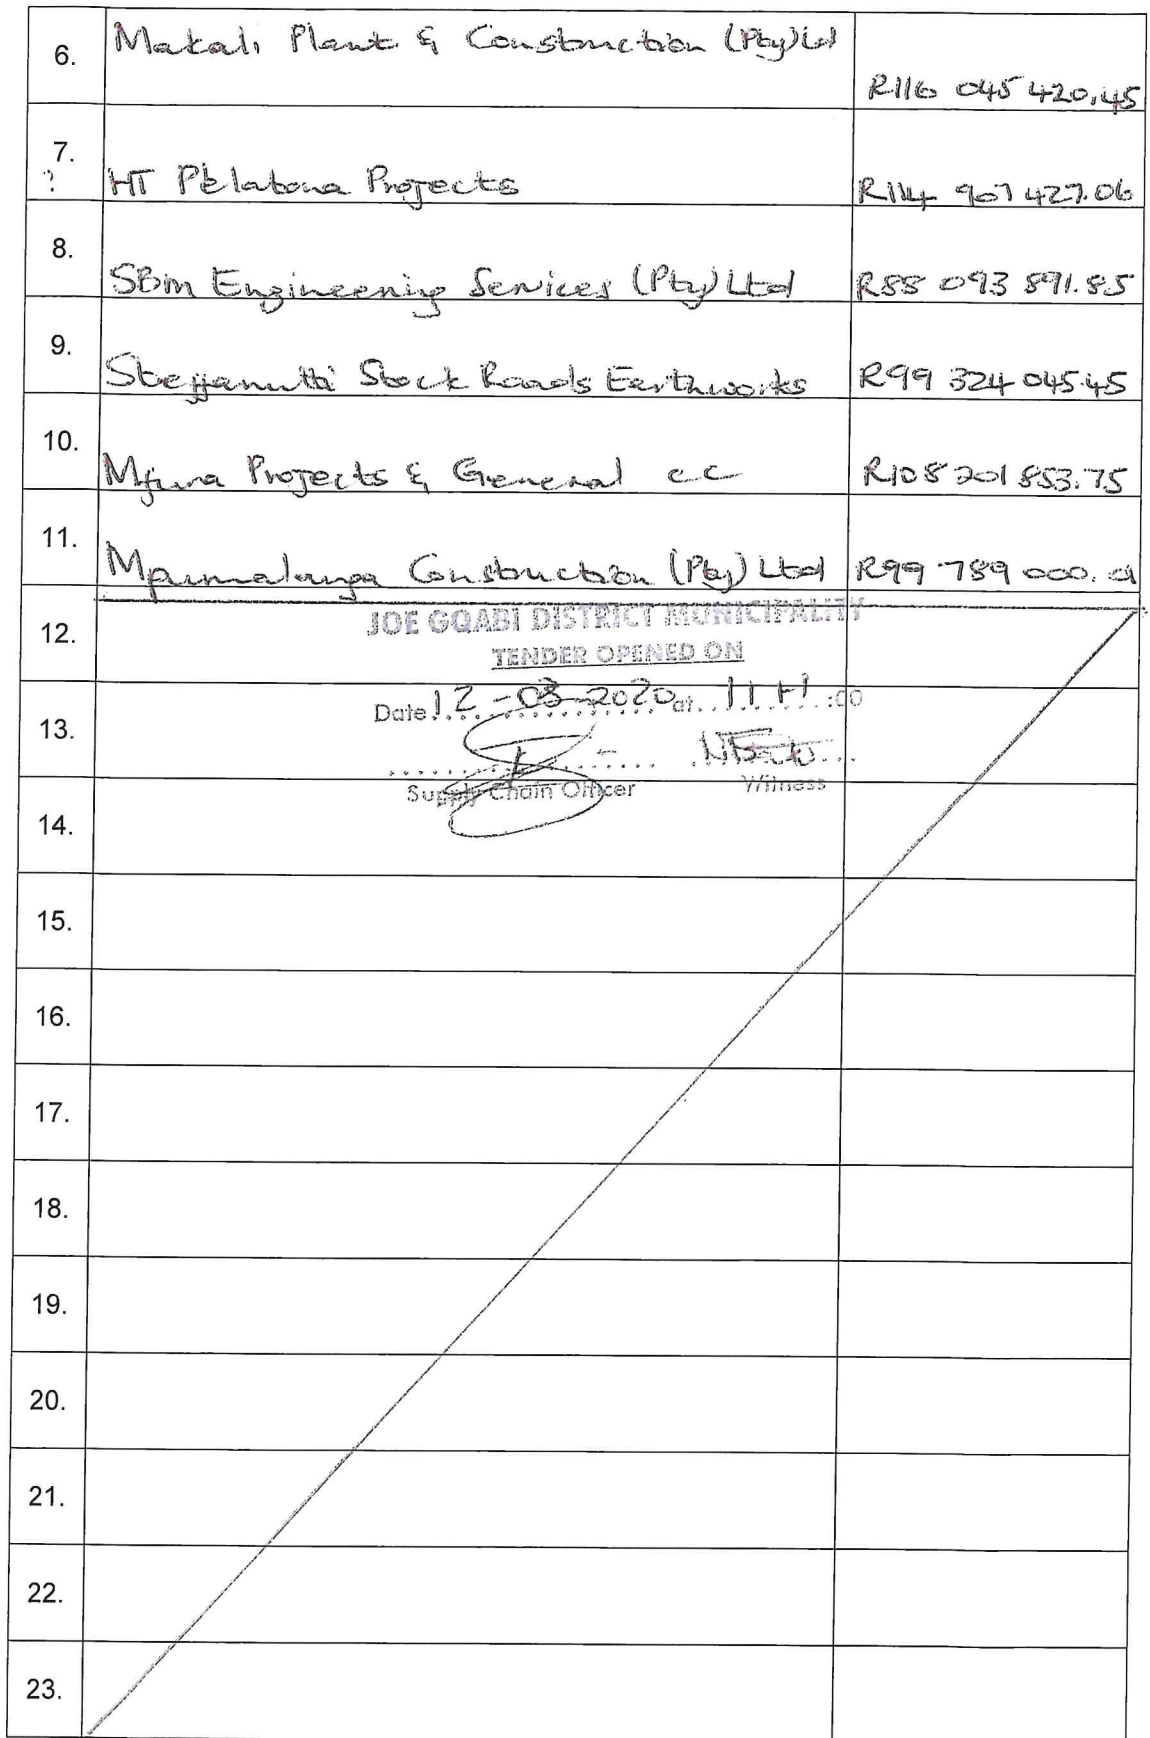 6. Makali Plant & Construction (Pty) Ltd R116 045 420.45
7. HT Pelatona Projects R114 907 427.06
8. SBM Engineering Services (Pty) Ltd R88 093 891.85
9. Stefanutti Stock Roads Earthworks R99 324 045.45
10. Mfura Projects & General cc R108 201 853.75
11. Mpumalanga Construction (Pty) Ltd R99 789 000.01
12. JOE GQABI DISTRICT MUNICIPALITY
TENDER OPENED ON
Date 12-03-2020 at 11H :00
13.
Supply Chain Officer Witness
14.
15.
16.
17.
18.
19.
20.
21.
22.
23.